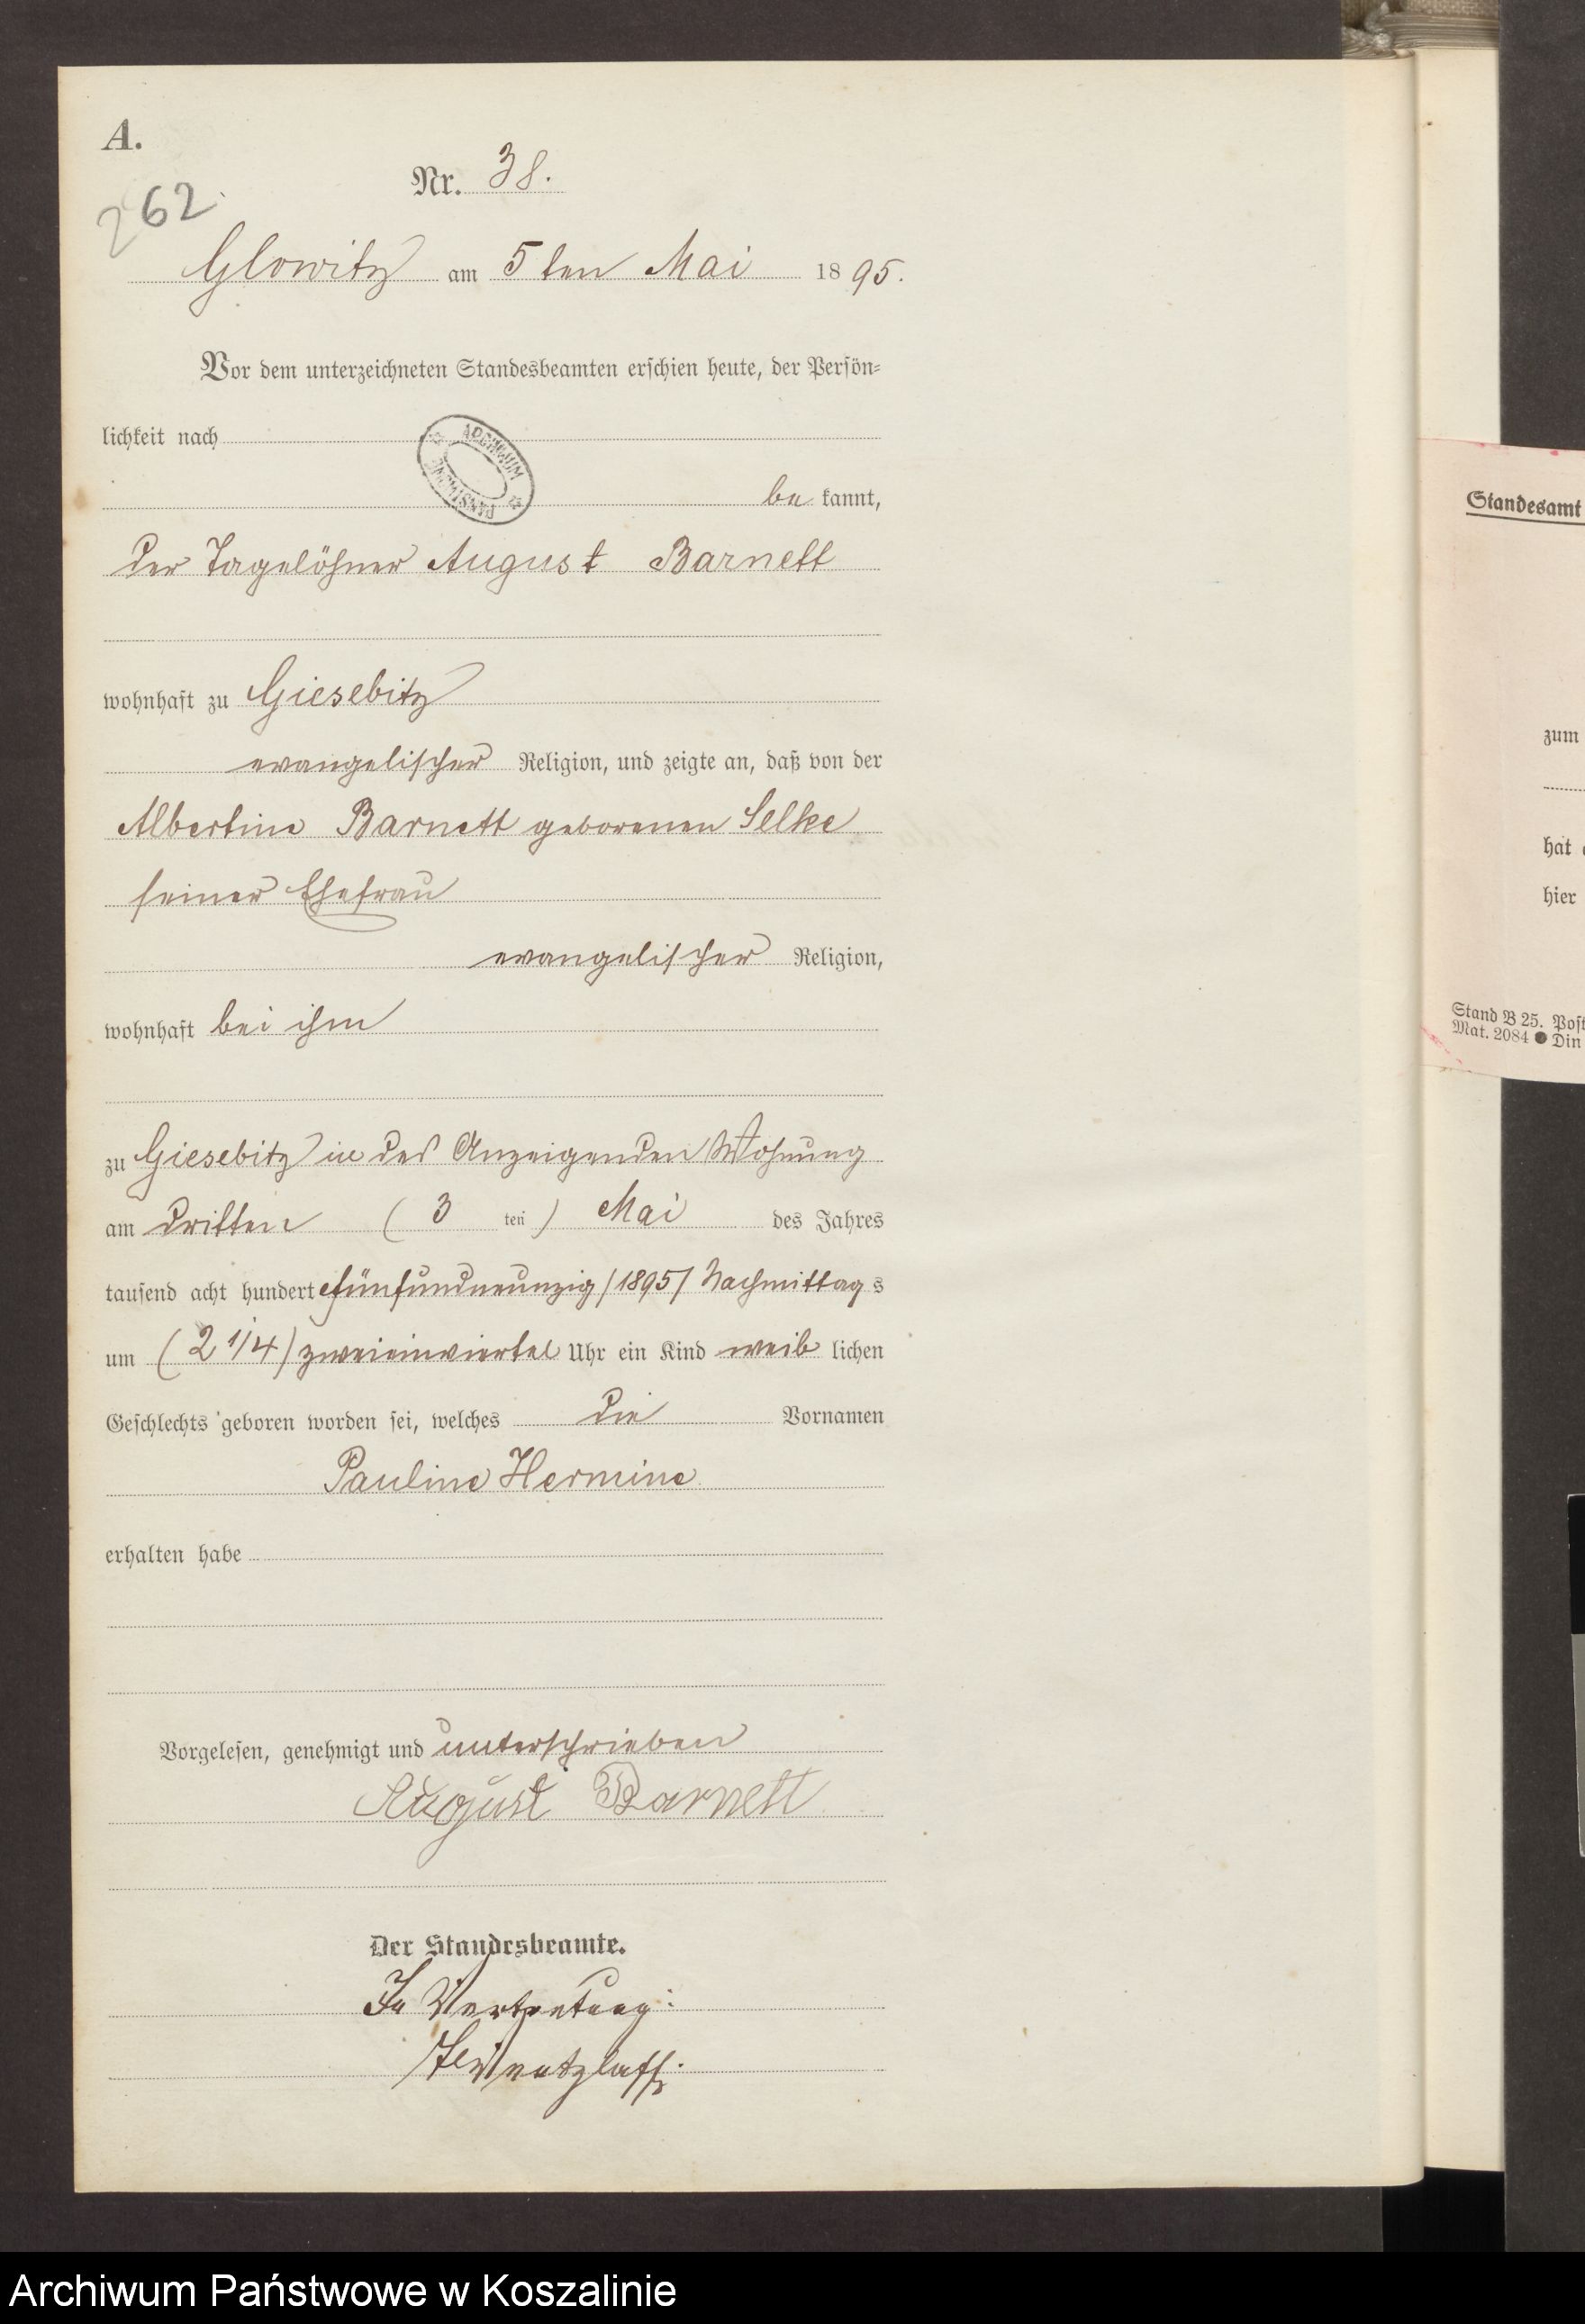 A.
Nr. 38.
262
Glowitz am 5ten Mai 1895.
Vor dem unterzeichneten Standesbeamten erschien heute, der Persön-
lichkeit nach
ARCHIWUM PAŃSTWOWE
be kannt,
der Tagelöhner August Barnett
wohnhaft zu Giesebitz
evangelischer Religion, und zeigte an, daß von der
Albertine Barnett geborenen Selke
seiner Ehefrau
evangelischer Religion,
wohnhaft bei ihm
zu Giesebitz in des Anzeigenden Wohnung
am dritten (3 ten) Mai des Jahres
tausend acht hundert fünfundneunzig /1895/ Nachmittags
um (2 1/4) zweieinviertel Uhr ein Kind weib lichen
Geschlechts geboren worden sei, welches die Vornamen
Pauline Hermine
erhalten habe
Vorgelesen, genehmigt und unterschrieben
August Barnett
Der Standesbeamte.
In Vertretung:
Standesamt
zum
hat
hier
Stand B 25. Post
Mat. 2084 ● Din
Archiwum Państwowe w Koszalinie